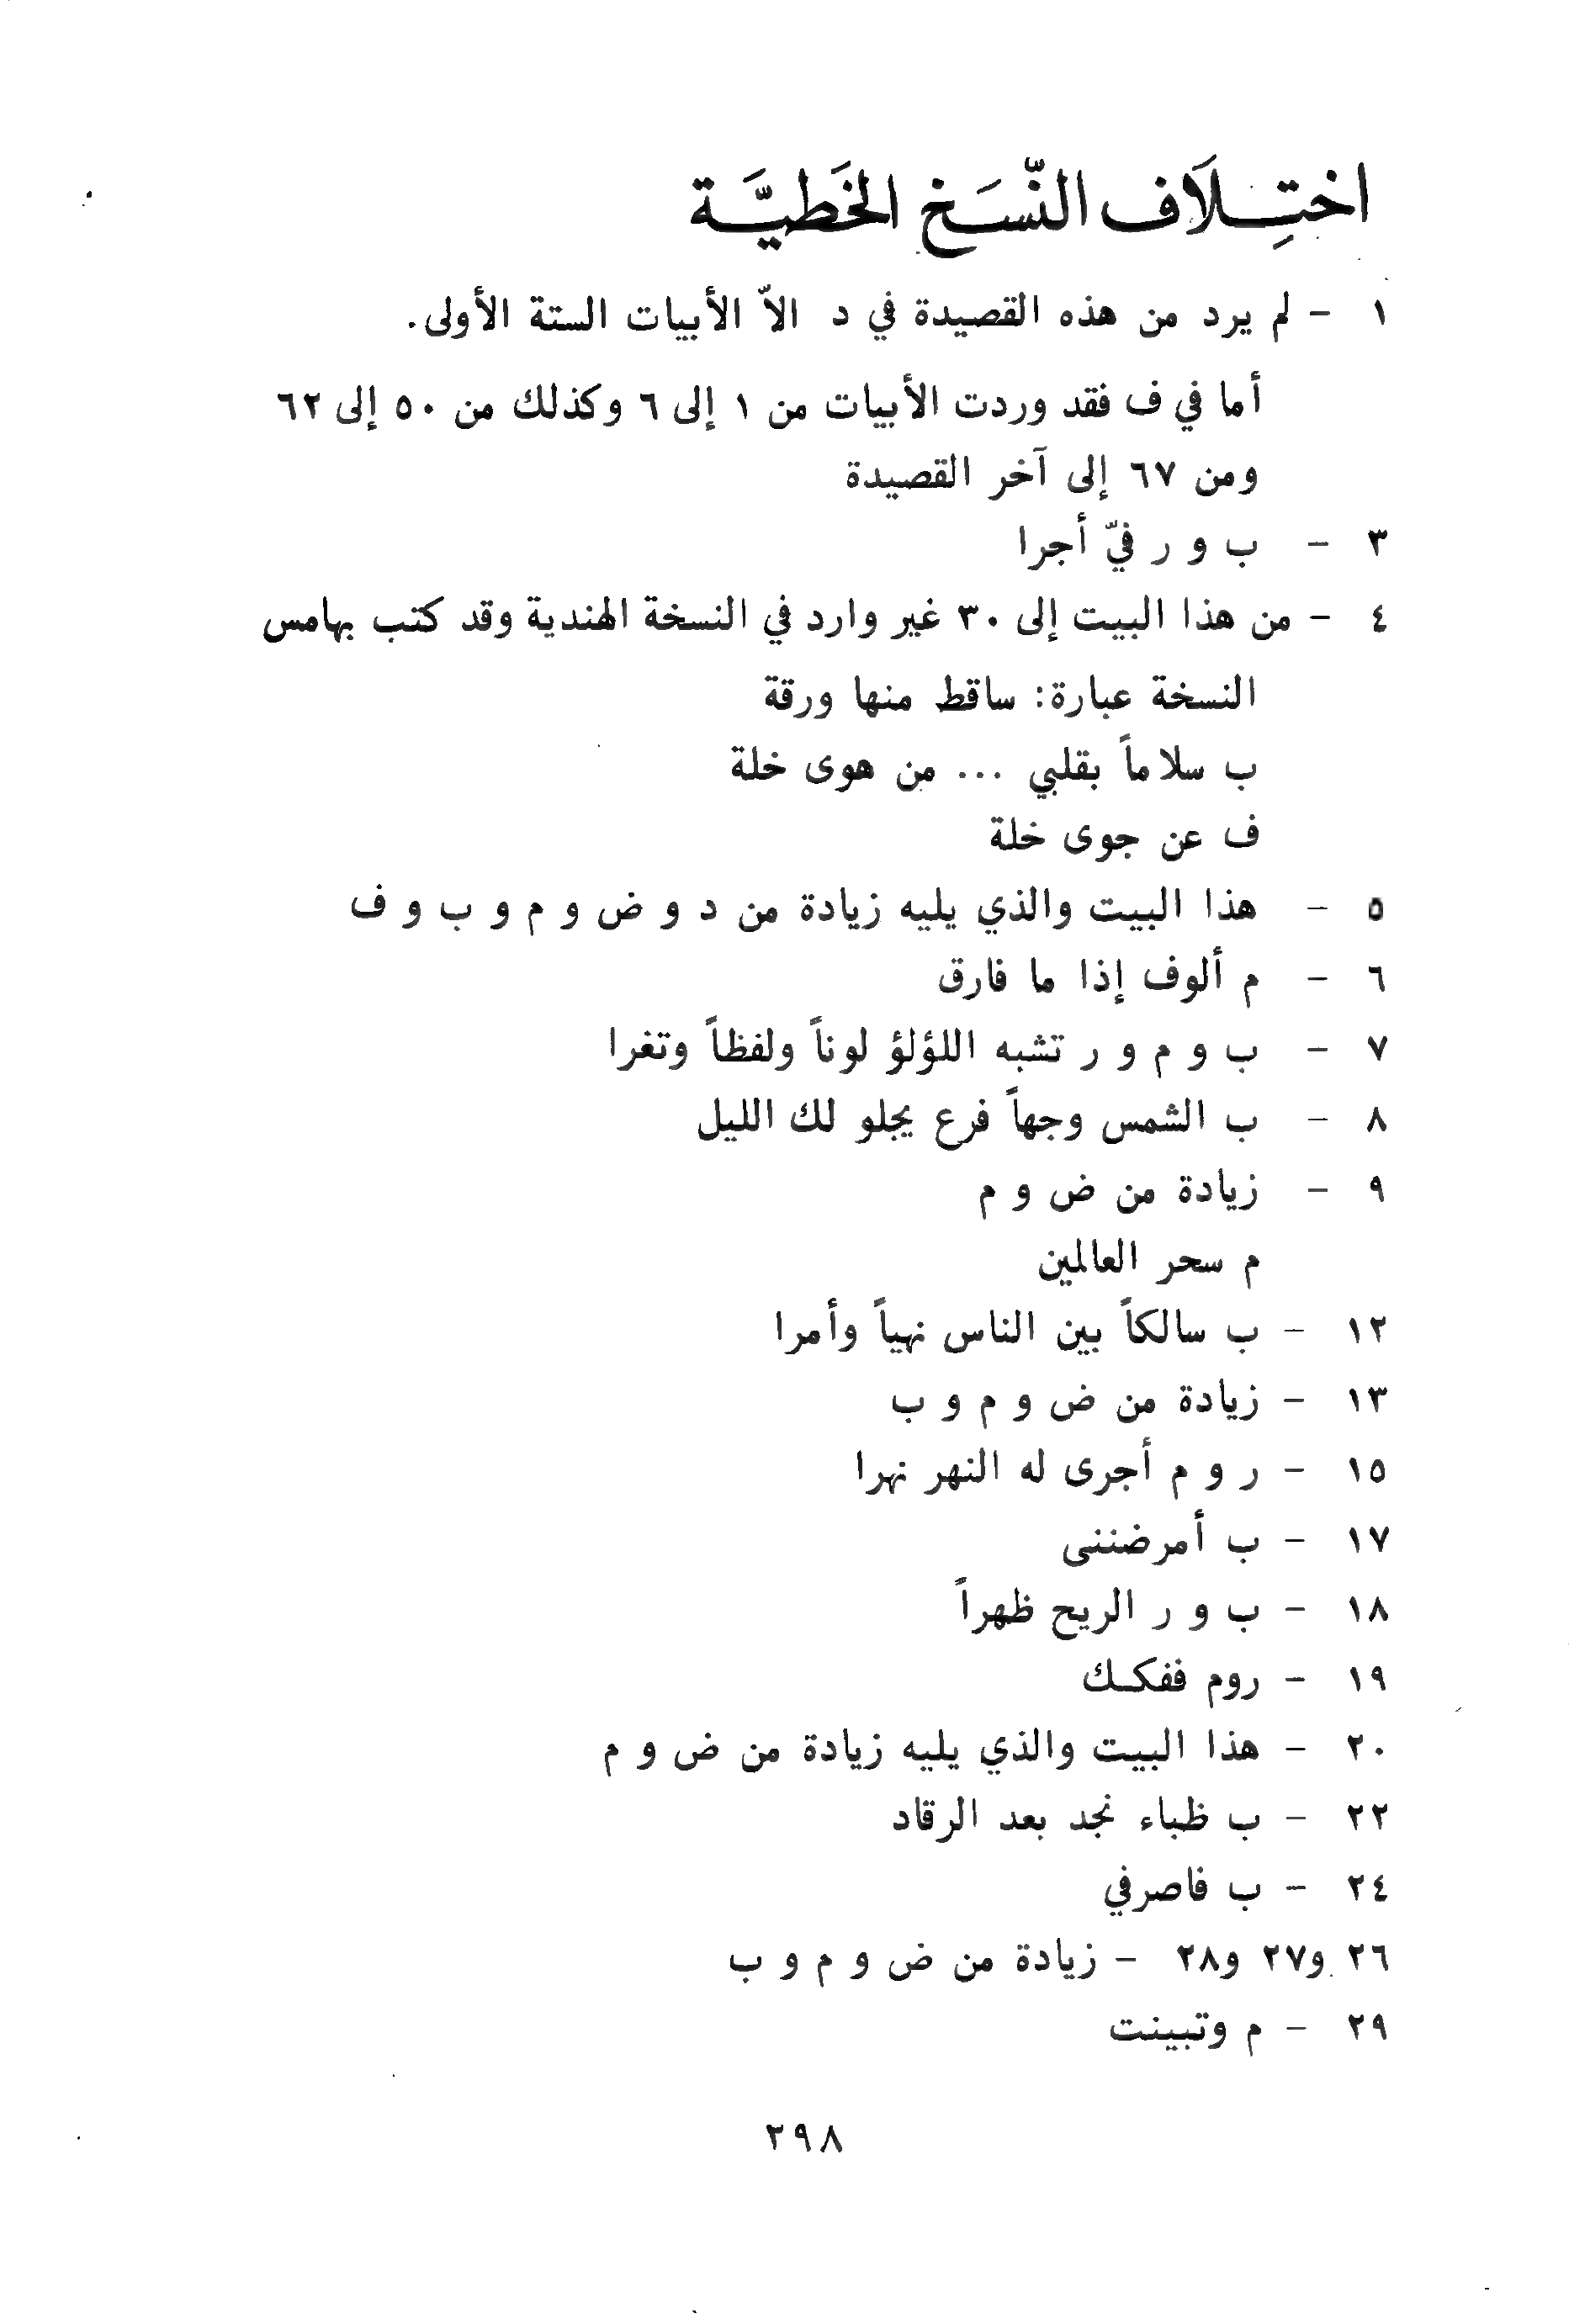 اختِلَاف النّسَخ الخَطيَّة
١ - لم يرد من هذه القصيدة في د الاّ الأبيات الستة الأولى.
أما في ف فقد وردت الأبيات من ١ إلى ٦ وكذلك من ٥٠ إلى ٦٢
ومن ٦٧ إلى آخر القصيدة
٣ - ب و ر فيّ أجرا
٤ - من هذا البيت إلى ٣٠ غير وارد في النسخة الهندية وقد كتب بهامس
النسخة عبارة: ساقط منها ورقة
ب سلاماً بقلبي ... من هوى خلة
ف عن جوى خلة
٥ - هذا البيت والذي يليه زيادة من د و ض و م و ب و ف
٦ - م ألوف إذا ما فارق
٧ - ب و م و ر تشبه اللؤلؤ لوناً ولفظاً وتغرا
٨ - ب الشمس وجهاً فرع يجلو لك الليل
٩ - زيادة من ض و م
م سحر العالمين
١٢ - ب سالكاً بين الناس نهياً وأمرا
١٣ - زيادة من ض و م و ب
١٥ - ر و م أجرى له النهر نهرا
١٧ - ب أمرضننى
١٨ - ب و ر الريح ظهراً
١٩ - روم ففكـك
٢٠ - هذا البيت والذي يليه زيادة من ض و م
٢٢ - ب ظباء نجد بعد الرقاد
٢٤ - ب فاصرفي
٢٦ و٢٧ و٢٨ - زيادة من ض و م و ب
٢٩ - م وتبينت
٢٩٨